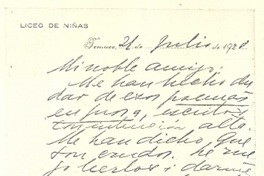 LICEO DE NIÑAS
Temuco, 21 de Julio de 1928.
Mi noble amigo:
Me han hecho du
dar de esos poemas
en prosa, escritos
con intención alta.
Me han dicho, que
son crudos. he